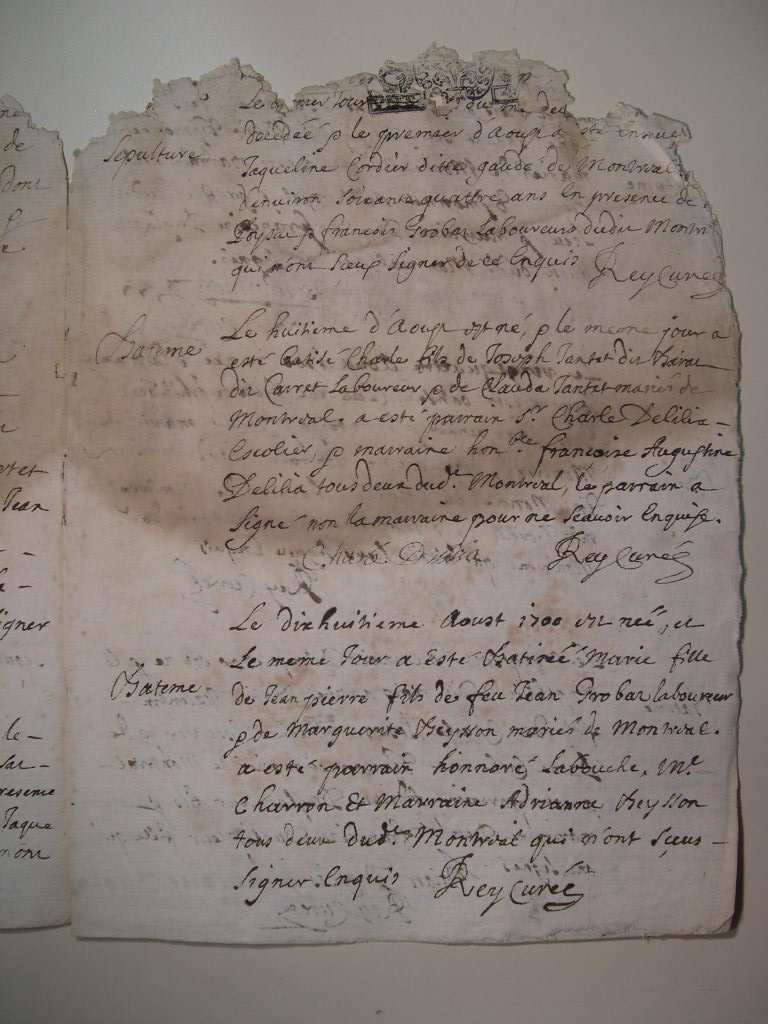 ne
de
dont
e.
Le premier Jour du me dec
Sepulture
decedée & le premier d'Aoust a esté inhue
Jaqueline Cordier ditte gaude de Montrval
d'environ soixante quattre ans en presence de
& françois Grobaz Laboureurs dudit Montr
qui n'ont sçeus signer de ce Enquis Rey Curé
Bateme
Le huitieme d'Aoust est né, & le meme jour a
esté batisé Charle fils de Joseph Tantet dit
dit Carret Laboureur & de Clauda Tantet mariés de
Montrval. a esté parrain Sr. Charle Delilia
Escolier, & marraine hon.ble francoise Augustine
Delilia tous deux dud.t Montrval, le parrain a
signé non la marraine pour ne sçavoir Enquise.
Charle Delilia Rey Curé
Bateme
Le dixhuitieme Aoust 1700 est neé, et
Le meme Jour a esté Batizeé Marie fille
de Jean pierre fils de feu Jean Grobaz laboureur
& de Marguerite Beysson mariés de Montrval.
a esté parrain honnoré Labouche, M.e
Charron Et Marraine Adrianne Beysson
tous deux dud.t Montrval qui n'ont sçeus
signer. Enquis Rey Curé
rtet
Jean
igner
le-
resense
Jaque
n'ont